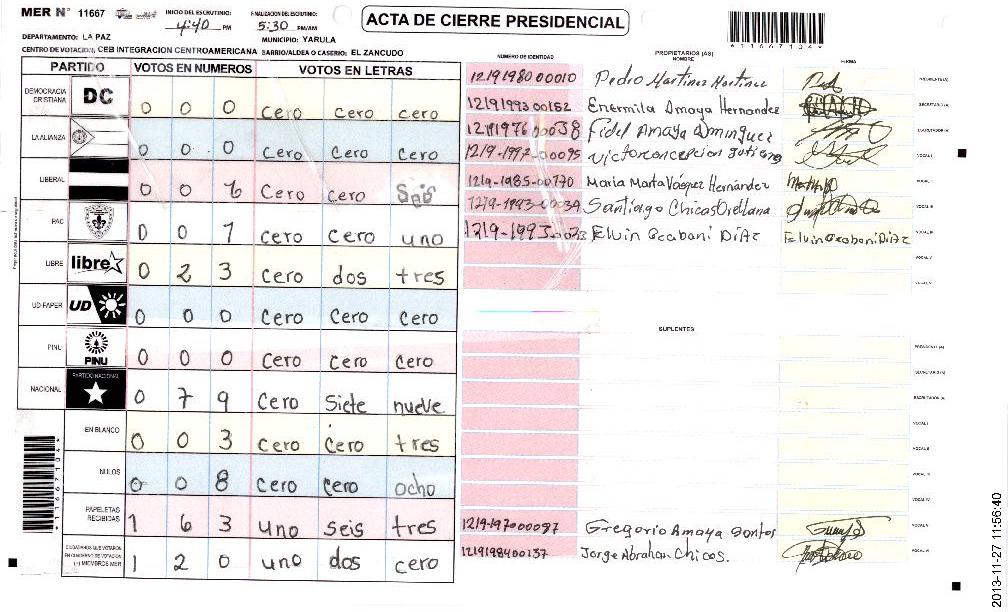 MER Nº 11667
INICIO DEL ESCRUTINIO: 4:40 PM
FINALIZACION DEL ESCRUTINIO: 5:30 PM/AM
ACTA DE CIERRE PRESIDENCIAL
*11667104*
DEPARTAMENTO: LA PAZ
MUNICIPIO: YARULA
CENTRO DE VOTACION: CEB INTEGRACION CENTROAMERICANA BARRIO/ALDEA O CASERIO: EL ZANCUDO
PARTIDO VOTOS EN NUMEROS VOTOS EN LETRAS
DEMOCRACIA CRISTIANA DC 0 0 0 cero cero cero
LA ALIANZA 0 0 0 cero cero cero
LIBERAL 0 0 6 cero cero Seis
PAC 0 0 1 cero cero uno
LIBRE libre 0 2 3 cero dos tres
UD-FAPER UD 0 0 0 cero cero cero
PINU PINU 0 0 0 cero cero cero
NACIONAL PARTIDO NACIONAL 0 7 9 cero siete nueve
EN BLANCO 0 0 3 cero cero tres
NULOS 0 0 8 cero cero ocho
PAPELETAS RECIBIDAS 1 6 3 uno seis tres
CIUDADANOS QUE VOTARON EN CUADERNO DE VOTACION (+) MIEMBROS MER 1 2 0 uno dos cero
*11667104*
NUMERO DE IDENTIDAD PROPIETARIOS (AS) NOMBRE FIRMA
1219198000010 Pedro Martinez Martinez PRESIDENTE (A)
1219199300152 Enermila Amaya Hernandez SECRETARIO (A)
1219197600038 Fidel Amaya Dominguez ESCRUTADOR (A)
1219-1997-00095 Victor concepcion VOCAL I
1219-1985-00770 Maria Marta Vásquez Hernández VOCAL II
1219-1993-00034 Santiago Chicas Orellana VOCAL III
1219-1993-00 Elvin Ocabani Diaz Elvin Ocabani Diaz VOCAL IV
VOCAL V
SUPLENTES
PRESIDENTE (A)
SECRETARIO (A)
ESCRUTADOR (A)
VOCAL I
VOCAL II
VOCAL III
VOCAL IV
1219-197000097 Gregorio Amaya Santos VOCAL V
1219198400137 Jorge Abrahan Chicas. VOCAL VI
2013-11-27 11:56:40